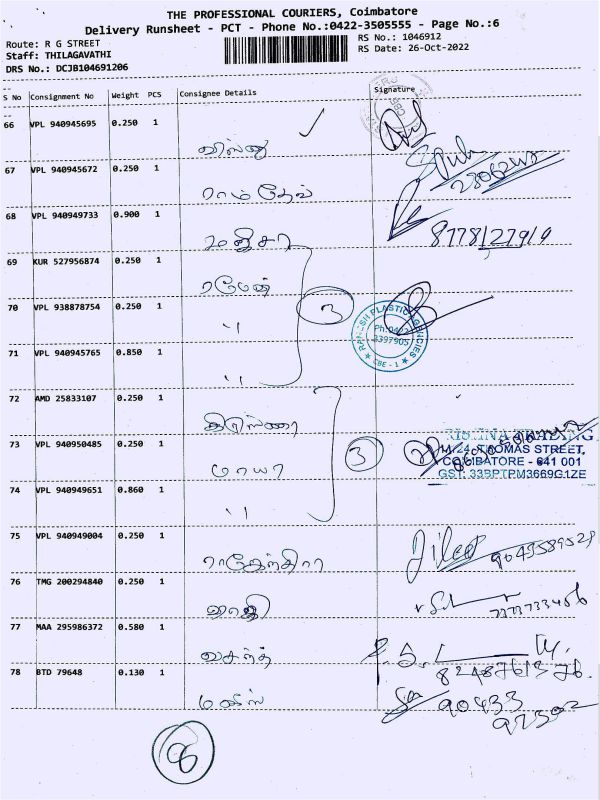 THE PROFESSIONAL COURIERS, Coimbatore
Delivery Runsheet - PCT - Phone No.:0422-3505555 - Page No.:6
Route: R G STREET
RS No.: 1046912
Staff: THILAGAVATHI
RS Date: 26-Oct-2022
DRS No.: DCJB104691206
S No Consignment No Weight PCS Consignee Details Signature
66 VPL 940945695 0.250 1
விஸ்ணு
67 VPL 940945672 0.250 1
ராம்தேவ்
68 VPL 940949733 0.900 1
மஞ்சா
8778127919
69 KUR 527956874 0.250 1
ரமேஷ்
70 VPL 938878754 0.250 1
"
3
Ph:0422
3397905
CBE - 1
71 VPL 940945765 0.850 1
"
72 AMD 25833107 0.250 1
கிரிஸ்ணா
73 VPL 940950485 0.250 1
மாயா
3
THOMAS STREET,
COIMBATORE - 641 001
GST: 33BPTPM3669G1ZE
74 VPL 940949651 0.860 1
"
75 VPL 940949004 0.250 1
ராஜேந்திரா
76 TMG 200294840 0.250 1
77 MAA 295986372 0.580 1
வசந்த்
78 BTD 79648 0.130 1
மனிஸ்
90433
92502
8